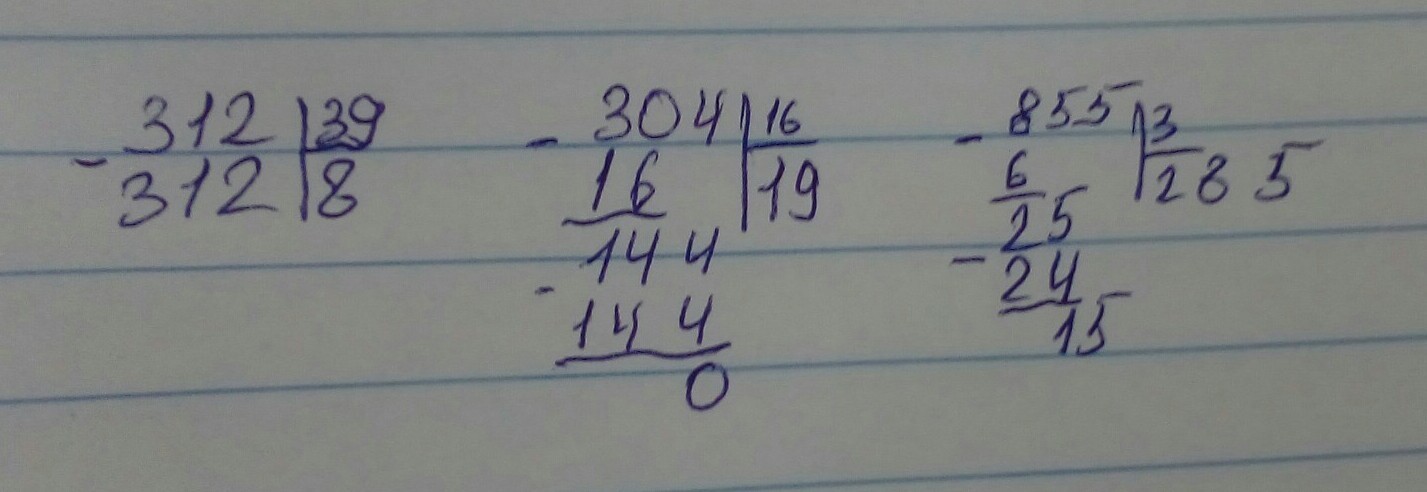 312 39
- 312 8
- 304 16
16 19
144
- 144
0
- 855 3
6 285
25
- 24
15